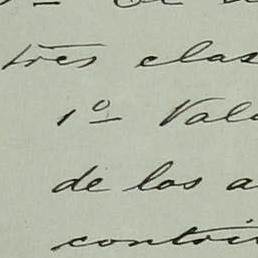 tres clas
1º Vale
de los a
contri